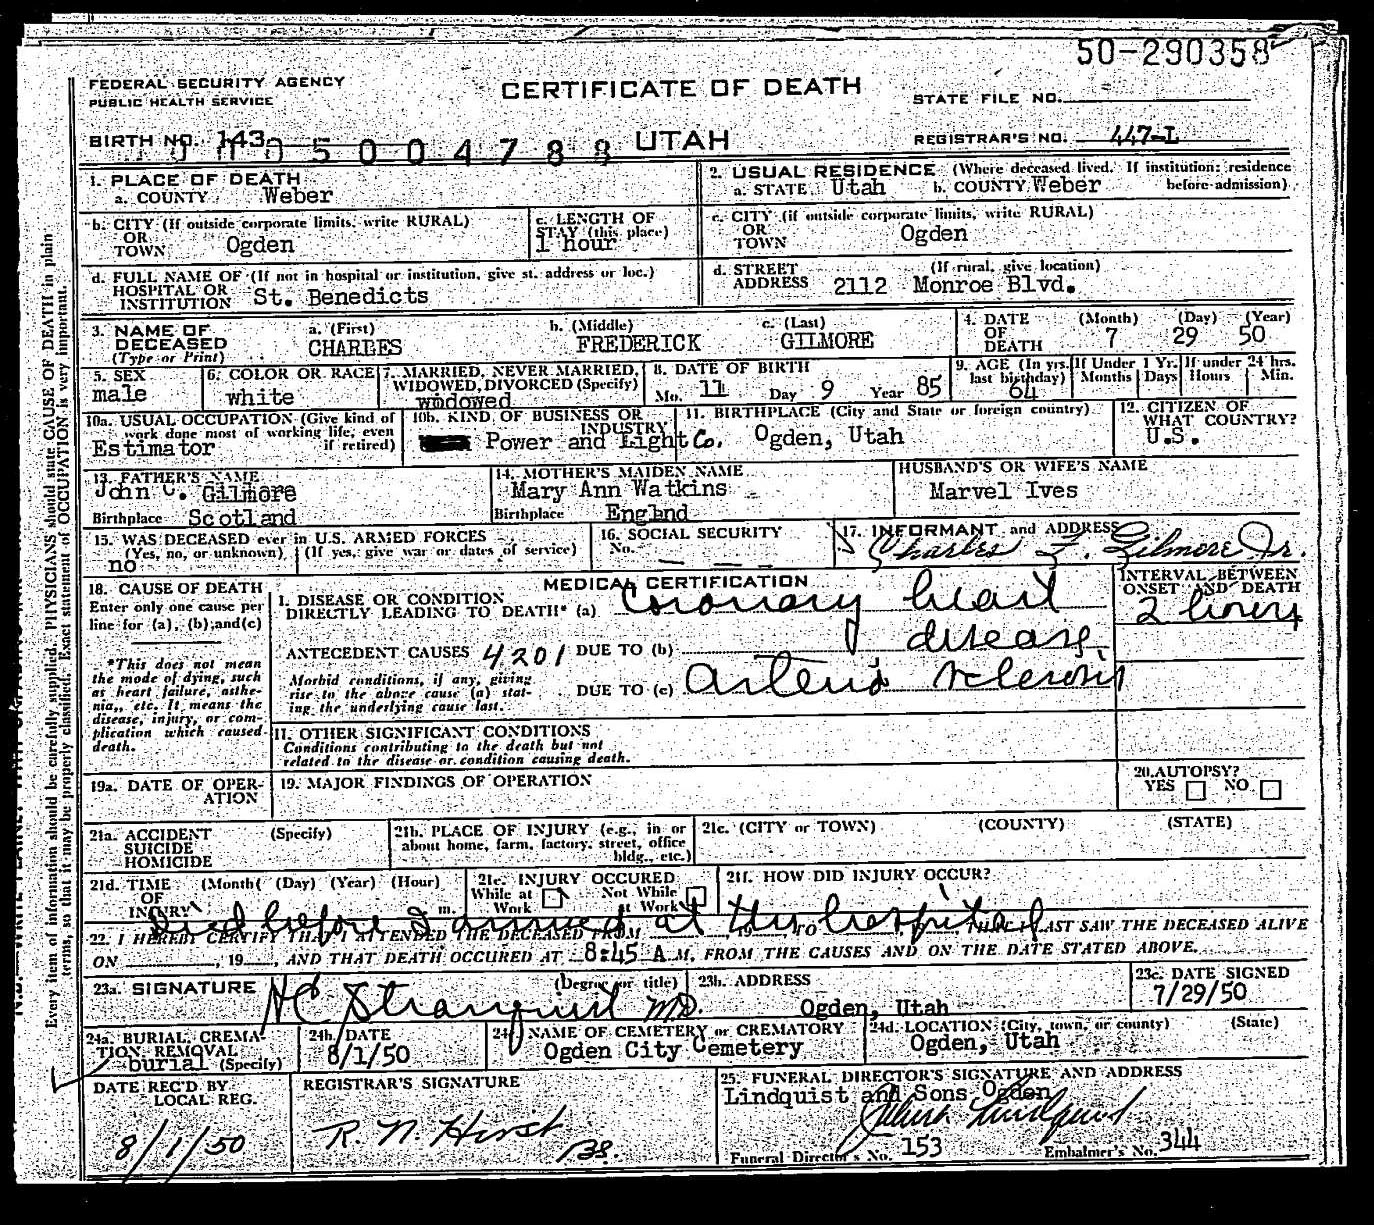 50-290358
FEDERAL SECURITY AGENCY
PUBLIC HEALTH SERVICE
CERTIFICATE OF DEATH
STATE FILE NO.
BIRTH NO. 143
5004788
UTAH
REGISTRAR'S NO. 447-L
1. PLACE OF DEATH
a. COUNTY Weber
2. USUAL RESIDENCE (Where deceased lived. If institution: residence before admission)
a. STATE Utah b. COUNTY Weber
b. CITY (If outside corporate limits, write RURAL)
OR
TOWN Ogden
c. LENGTH OF
STAY (this place)
1 hour
c. CITY (if outside corporate limits, write RURAL)
OR
TOWN Ogden
d. FULL NAME OF (If not in hospital or institution, give st. address or loc.)
HOSPITAL OR
INSTITUTION St. Benedicts
d. STREET (If rural, give location)
ADDRESS 2112 Monroe Blvd.
3. NAME OF DECEASED
(Type or Print)
a. (First) CHARLES
b. (Middle) FREDERICK
c. (Last) GILMORE
4. DATE OF DEATH
(Month) (Day) (Year)
7 29 50
5. SEX
male
6. COLOR OR RACE
white
7. MARRIED, NEVER MARRIED,
WIDOWED, DIVORCED (Specify)
wmdowed
8. DATE OF BIRTH
Mo. 11 Day 9 Year 85
9. AGE (In yrs. last birthday)
64
If Under 1 Yr.
Months Days
If under 24 hrs.
Hours Min.
10a. USUAL OCCUPATION (Give kind of
work done most of working life, even
if retired)
Estimator
10b. KIND OF BUSINESS OR
INDUSTRY
Power and Light Co.
11. BIRTHPLACE (City and State or foreign country)
Ogden, Utah
12. CITIZEN OF
WHAT COUNTRY?
U.S.
13. FATHER'S NAME
John C. Gilmore
Birthplace Scotland
14. MOTHER'S MAIDEN NAME
Mary Ann Watkins
Birthplace Englnd
HUSBAND'S OR WIFE'S NAME
Marvel Ives
15. WAS DECEASED ever in U.S. ARMED FORCES
(Yes, no, or unknown) (If yes, give war or dates of service)
no
16. SOCIAL SECURITY
No. - - -
17. INFORMANT and ADDRESS
Charles F. Gilmore Jr.
18. CAUSE OF DEATH
Enter only one cause per
line for (a), (b), and (c)
*This does not mean
the mode of dying, such
as heart failure, asthe-
nia,, etc. It means the
disease, injury, or com-
plication which caused
death.
MEDICAL CERTIFICATION
I. DISEASE OR CONDITION
DIRECTLY LEADING TO DEATH* (a) Coronary heart
disease
ANTECEDENT CAUSES 4201 DUE TO (b)
Morbid conditions, if any, giving
rise to the above cause (a) stat-
ing the underlying cause last.
DUE TO (c) Arterio sclerosis
INTERVAL BETWEEN
ONSET AND DEATH
2 hours
II. OTHER SIGNIFICANT CONDITIONS
Conditions contributing to the death but not
related to the disease or condition causing death.
19a. DATE OF OPER-
ATION
19. MAJOR FINDINGS OF OPERATION
20. AUTOPSY?
YES NO
21a. ACCIDENT (Specify)
SUICIDE
HOMICIDE
21b. PLACE OF INJURY (e.g., in or
about home, farm, factory, street, office
bldg., etc.)
21c. (CITY or TOWN) (COUNTY) (STATE)
21d. TIME (Month( (Day) (Year) (Hour)
OF
INJURY m.
21e. INJURY OCCURED
While at Work Not While at Work
21f. HOW DID INJURY OCCUR?
Died before I arrived at the hospital
22. I HEREBY CERTIFY THAT I ATTENDED THE DECEASED FROM TO THAT I LAST SAW THE DECEASED ALIVE
ON , 19 , AND THAT DEATH OCCURED AT 8:45 A M, FROM THE CAUSES AND ON THE DATE STATED ABOVE.
23a. SIGNATURE (Degree or title)
HC Stranquist MD.
23b. ADDRESS
Ogden, Utah
23c. DATE SIGNED
7/29/50
24a. BURIAL, CREMA-
TION REMOVAL
burial (Specify)
24b. DATE
8/1/50
24c NAME OF CEMETERY or CREMATORY
Ogden City Cemetery
24d. LOCATION (City, town, or county) (State)
Ogden, Utah
DATE REC'D BY
LOCAL REG.
8/1/50
REGISTRAR'S SIGNATURE
R. N. Hirst
25. FUNERAL DIRECTOR'S SIGNATURE AND ADDRESS
Lindquist and Sons Ogden
Funeral Director's No. 153
Embalmer's No. 344
Every item of information should be carefully supplied. PHYSICIANS should state CAUSE OF DEATH in plain
terms, so that it may be properly classified. Exact statement of OCCUPATION is very important.